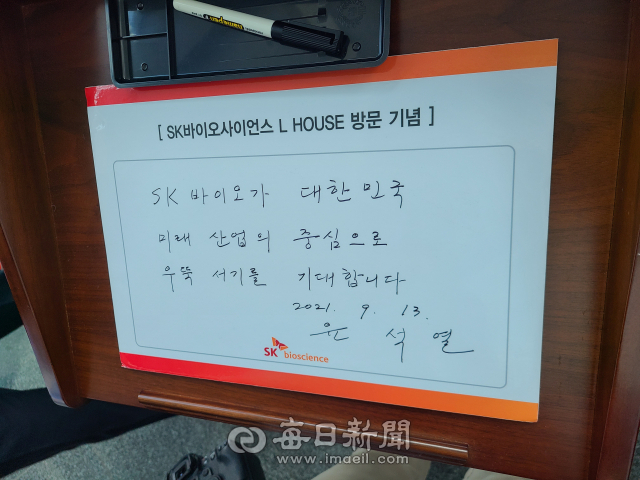 [ SK바이오사이언스 L HOUSE 방문 기념 ]
SK 바이오가 대한민국
미래 산업의 중심으로
우뚝 서기를 기대합니다
2021. 9. 13.
윤 석 열
SK bioscience
每日新聞
www.imaeil.com